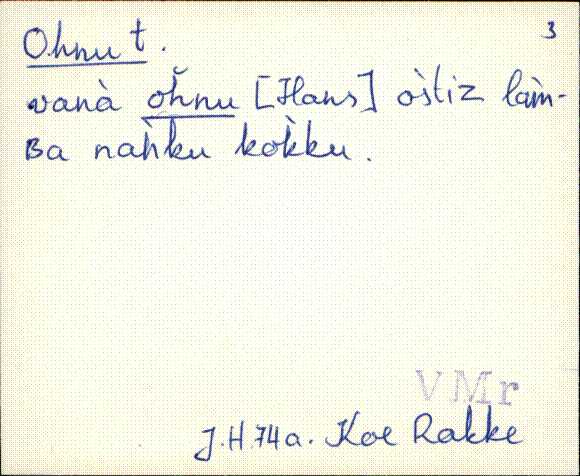 3
Ohnu t.
vanà oȟnu [Hans] òstiz làm-
Ba nahku kokku.
VMr
J.H. 74 a. Koe Rakke